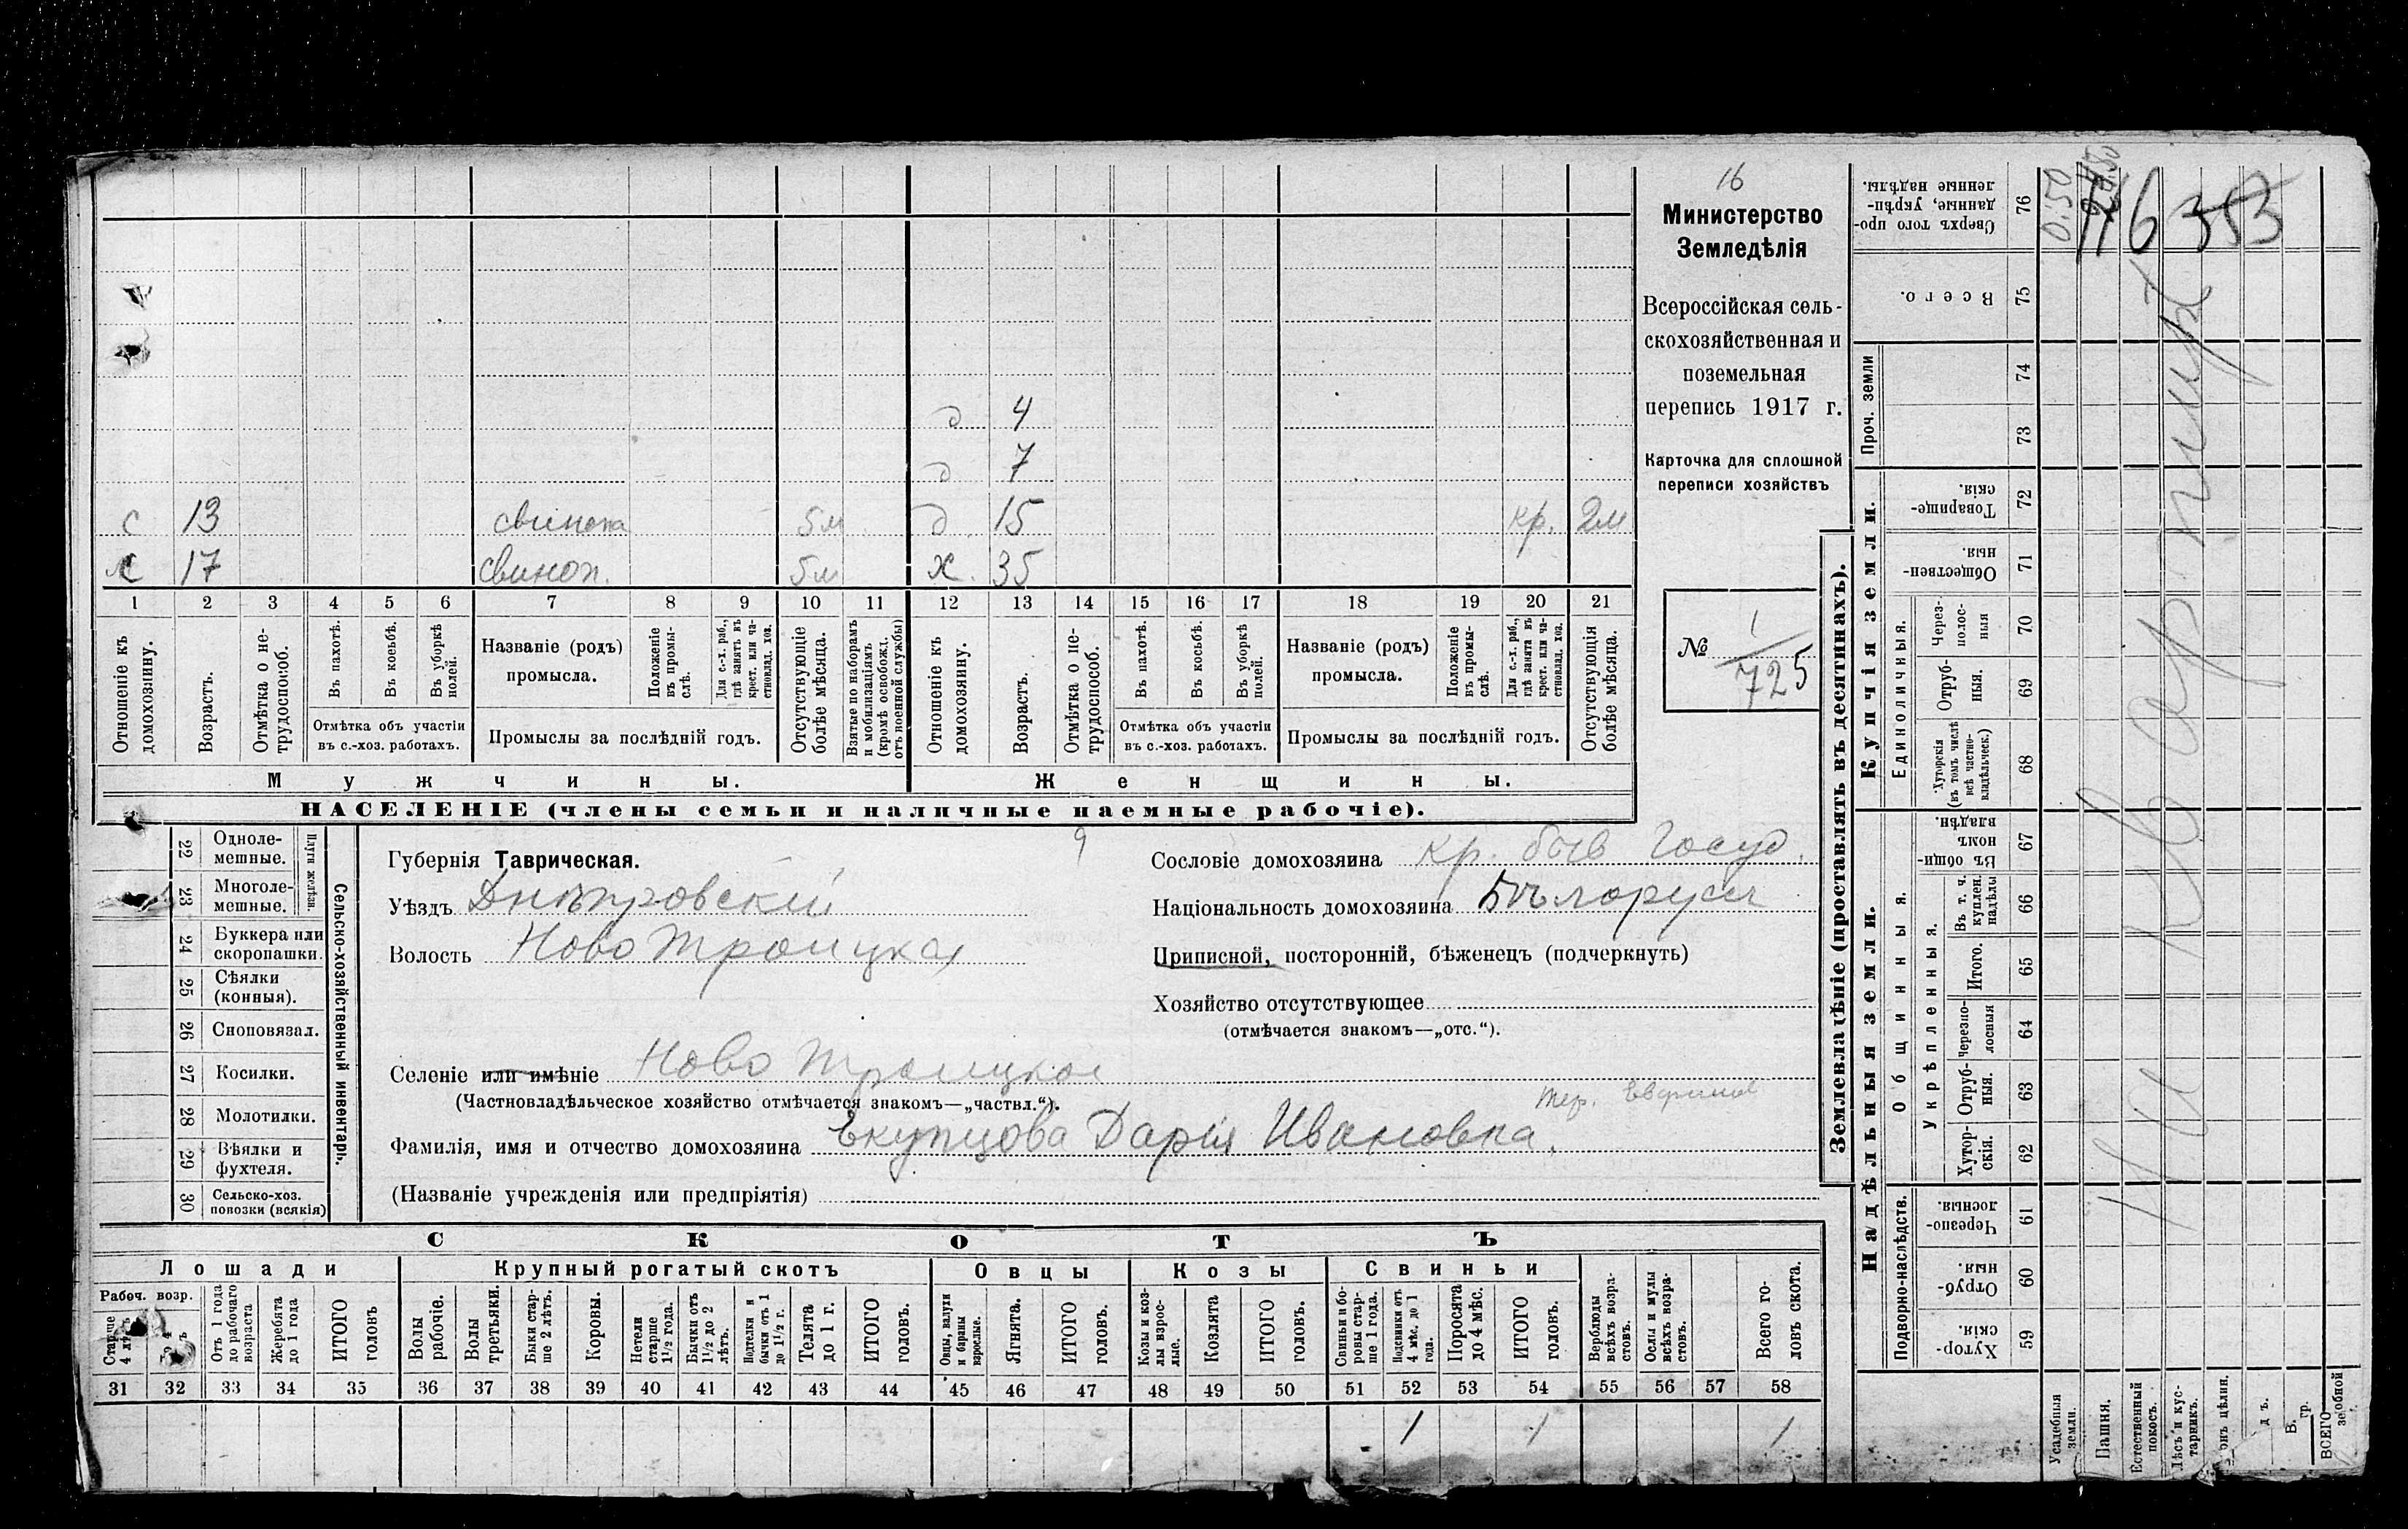 16
Министерство
Земледѣлія
Всероссійская сель-
скохозяйственная и
поземельная
перепись 1917 г.
Карточка для сплошной
переписи хозяйствъ
№ 1/725
д 4
д 7
с 13 свинопа 5м д 15 кр. 2м
с 17 свиноп. 5м х. 35
1 2 3 4 5 6 7 8 9 10 11 12 13 14 15 16 17 18 19 20 21
Отношеніе къ домохозяину.
Возрастъ.
Отмѣтка о не-трудоспособ.
Въ пахотѣ.
Въ косьбѣ.
Въ уборкѣ полей.
Отмѣтка объ участіи въ с.-хоз. работахъ.
Названіе (родъ) промысла.
Положеніе въ промы-слѣ.
Для с.-х. раб., гдѣ занятъ въ крест. или ча-стновлад. хоз.
Промыслы за послѣдній годъ.
Отсутствующіе болѣе мѣсяца.
Взятые по наборамъ и мобилизаціямъ (кромѣ освобожд. отъ военной службы)
Отношеніе къ домохозяину.
Возрастъ.
Отмѣтка о не-трудоспособ.
Въ пахотѣ.
Въ косьбѣ.
Въ уборкѣ полей.
Отмѣтка объ участіи въ с.-хоз. работахъ.
Названіе (родъ) промысла.
Положеніе въ промы-слѣ.
Для с.-х. раб., гдѣ занята въ крест. или ча-стновлад. хоз.
Промыслы за послѣдній годъ.
Отсутствующія болѣе мѣсяца.
Мужчины. Женщины.
НАСЕЛЕНІЕ (члены семьи и наличные наемные рабочіе).
22 Одноле-мешные.
23 Многоле-мешные.
Плуги желѣзн.
24 Буккера или скоропашки.
25 Сѣялки (конныя).
26 Сноповязал.
27 Косилки.
28 Молотилки.
29 Вѣялки и фухтеля.
30 Сельско-хоз. повозки (всякія)
Сельско-хозяйственный инвентарь.
9
Губернія Таврическая.
Уѣздъ Днѣпровскій
Волость Ново Троицкая
Селеніе или имѣніе Ново Троицкое
(Частновладѣльческое хозяйство отмѣчается знакомъ—„частвл.“).
Фамилія, имя и отчество домохозяина Екупцова Дарія Ивановна.
(Названіе учрежденія или предпріятія)
Сословіе домохозяина кр. быв Госуд.
Національность домохозяина Бѣлорусы
Приписной, посторонній, бѣженецъ (подчеркнуть)
Хозяйство отсутствующее
(отмѣчается знакомъ—„отс.“).
СКОТЪ
Лошади Крупный рогатый скотъ Овцы Козы Свиньи
Рабоч. возр.
Старше 4 лѣтъ
Отъ 1 года до рабочаго возраста
Жеребята до 1 года
ИТОГО головъ
Волы рабочіе.
Волы третьяки.
Быки стар-ше 2 лѣтъ.
Коровы.
Нетели старше 1½ года.
Бычки отъ 1½ до 2 лѣтъ.
Подтелки и бычки отъ 1 до 1½ г.
Телята до 1 г.
ИТОГО головъ.
Овцы, валухи и бараны взрослые.
Ягнята.
ИТОГО головъ.
Козы и коз-лы взрос-лые.
Козлята
ИТОГО головъ.
Свиньи и бо-ровы стар-ше 1 года.
Подсвинки отъ 4 мѣс. до 1 года.
Поросята до 4 мѣс.
ИТОГО головъ.
Верблюды всѣхъ возра-стовъ.
Ослы и мулы всѣхъ возра-стовъ.
Всего го-ловъ скота.
31 32 33 34 35 36 37 38 39 40 41 42 43 44 45 46 47 48 49 50 51 52 53 54 55 56 57 58
1 1 1
Землевладѣніе (проставлять въ десятинахъ).
Надѣльныя земли. Купчія земли. Проч. земли
Подворно-наслѣдств.
Общинныя.
Укрѣпленныя.
Единоличныя.
Хутор-скія. 59
Отруб-ныя. 60
Черезпо-лосныя. 61
Хутор-скія. 62
Отруб-ныя. 63
Черезпо-лосныя 64
Итого. 65
Въ т. ч. куплен. надѣлы 66
Въ общи-номъ владѣн. 67
Хуторскія (въ томъ числѣ всѣ частно-владѣльческ.) 68
Отруб-ныя. 69
Через-полос-ныя 70
Обществен-ныя. 71
Товарище-скія. 72
73
74
Всего. 75
Сверхъ того про-данные, укрѣп-ленные надѣлы. 76
Усадебныя земли.
Пашня.
Естественный покосъ.
Лѣсъ и кус-тарникъ.
ВСЕГО
0.50
116 353
На квартирѣ